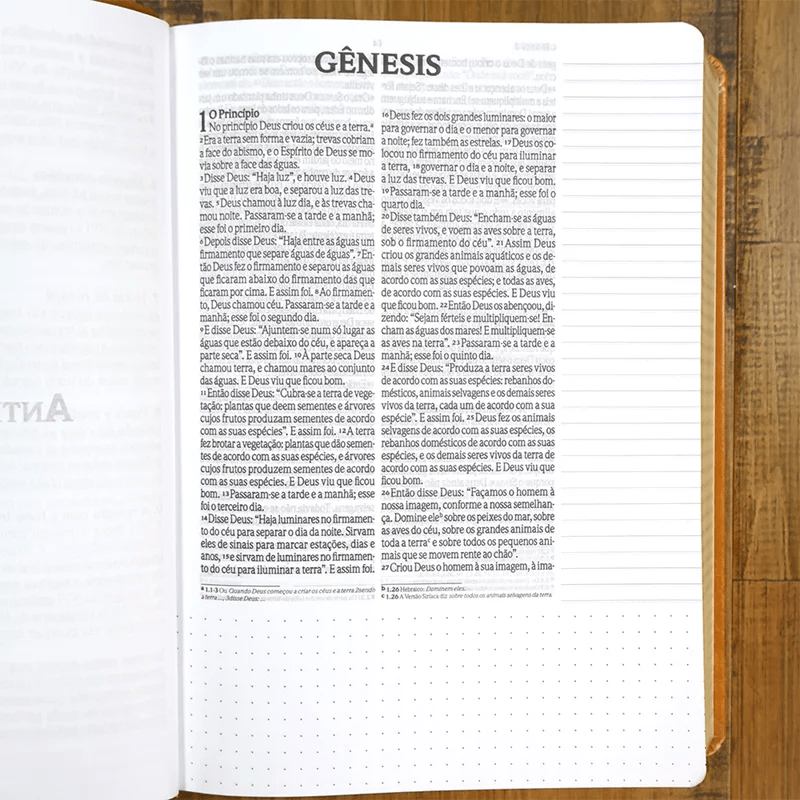 GÊNESIS
1 O Princípio
No princípio Deus criou os céus e a terra.ª
2 Era a terra sem forma e vazia; trevas cobriam
a face do abismo, e o Espírito de Deus se mo-
via sobre a face das águas.
3 Disse Deus: “Haja luz”, e houve luz. 4 Deus
viu que a luz era boa, e separou a luz das tre-
vas. 5 Deus chamou à luz dia, e às trevas cha-
mou noite. Passaram-se a tarde e a manhã;
esse foi o primeiro dia.
6 Depois disse Deus: “Haja entre as águas um
firmamento que separe águas de águas”. 7 En-
tão Deus fez o firmamento e separou as águas
que ficaram abaixo do firmamento das que
ficaram por cima. E assim foi. 8 Ao firmamen-
to, Deus chamou céu. Passaram-se a tarde e a
manhã; esse foi o segundo dia.
9 E disse Deus: “Ajuntem-se num só lugar as
águas que estão debaixo do céu, e apareça a
parte seca”. E assim foi. 10 À parte seca Deus
chamou terra, e chamou mares ao conjunto
das águas. E Deus viu que ficou bom.
11 Então disse Deus: “Cubra-se a terra de vege-
tação: plantas que deem sementes e árvores
cujos frutos produzam sementes de acordo
com as suas espécies”. E assim foi. 12 A terra
fez brotar a vegetação: plantas que dão semen-
tes de acordo com as suas espécies, e árvores
cujos frutos produzem sementes de acordo
com as suas espécies. E Deus viu que ficou
bom. 13 Passaram-se a tarde e a manhã; esse
foi o terceiro dia.
14 Disse Deus: “Haja luminares no firmamen-
to do céu para separar o dia da noite. Sirvam
eles de sinais para marcar estações, dias e
anos, 15 e sirvam de luminares no firmamen-
to do céu para iluminar a terra”. E assim foi.
a 1.1-3 Ou Quando Deus começou a criar os céus e a terra, 2 sendo
a terra ..., 3 disse Deus: ...
16 Deus fez os dois grandes luminares: o maior
para governar o dia e o menor para governar
a noite; fez também as estrelas. 17 Deus os co-
locou no firmamento do céu para iluminar
a terra, 18 governar o dia e a noite, e separar
a luz das trevas. E Deus viu que ficou bom.
19 Passaram-se a tarde e a manhã; esse foi o
quarto dia.
20 Disse também Deus: “Encham-se as águas
de seres vivos, e voem as aves sobre a terra,
sob o firmamento do céu”. 21 Assim Deus
criou os grandes animais aquáticos e os de-
mais seres vivos que povoam as águas, de
acordo com as suas espécies; e todas as aves,
de acordo com as suas espécies. E Deus viu
que ficou bom. 22 Então Deus os abençoou, di-
zendo: “Sejam férteis e multipliquem-se! En-
cham as águas dos mares! E multipliquem-se
as aves na terra”. 23 Passaram-se a tarde e a
manhã; esse foi o quinto dia.
24 E disse Deus: “Produza a terra seres vivos
de acordo com as suas espécies: rebanhos do-
mésticos, animais selvagens e os demais seres
vivos da terra, cada um de acordo com a sua
espécie”. E assim foi. 25 Deus fez os animais
selvagens de acordo com as suas espécies, os
rebanhos domésticos de acordo com as suas
espécies, e os demais seres vivos da terra de
acordo com as suas espécies. E Deus viu que
ficou bom.
26 Então disse Deus: “Façamos o homem à
nossa imagem, conforme a nossa semelhan-
ça. Domine eleᵇ sobre os peixes do mar, sobre
as aves do céu, sobre os grandes animais de
toda a terraᶜ e sobre todos os pequenos ani-
mais que se movem rente ao chão”.
27 Criou Deus o homem à sua imagem, à ima-
b 1.26 Hebraico: Dominem eles.
c 1.26 A Versão Siríaca diz sobre todos os animais selvagens da terra.